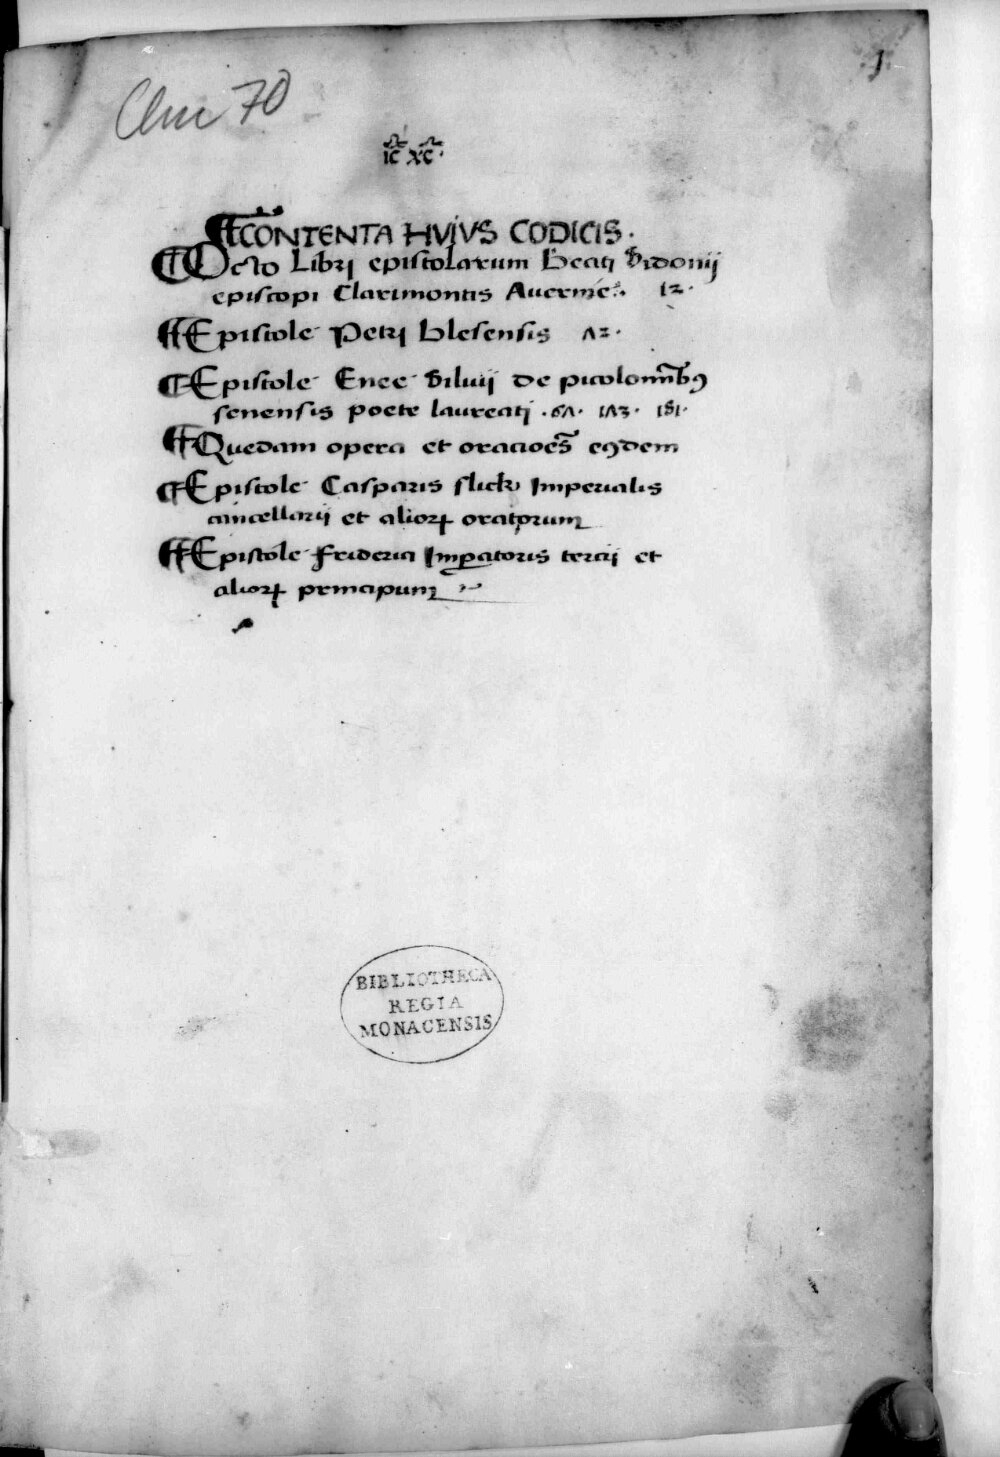 1
Clm 70
ic xc·
¶ CONTENTA HVIVS CODICIS·
¶ Octo Libri epistolarum Beati Sidonij
episcopi Clarimontis 12·
¶ Epistole Petri blesensis Λ2·
¶ Epistole Enee Siluij de picolomībꝯ
senensis poete laureati ·6Λ· 1Λ3· 181·
¶ Quedam opera et oracioēs eꝯdem
¶ Epistole Casparis slick Imperialis
cancellarij et alioꝝ oratorum
¶ Epistole friderici Imꝑatoris tercij et
alioꝝ principum
BIBLIOTHECA
REGIA
MONACENSIS